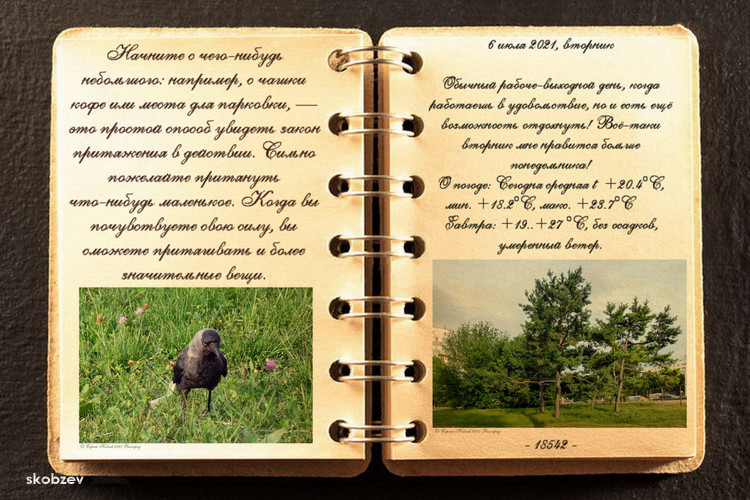 Начните с чего-нибудь
небольшого: например, с чашки
кофе или места для парковки, —
это простой способ увидеть закон
притяжения в действии. Сильно
пожелайте притянуть
что-нибудь маленькое. Когда вы
почувствуете свою силу, вы
сможете притягивать и более
значительные вещи.
6 июля 2021, вторник
Обычный рабоче-выходной день, когда
работаешь в удовольствие, но и есть ещё
возможность отдохнуть! Всё-таки
вторник мне нравится больше
понедельника!
О погоде: Сегодня средняя t +20.4°C,
мин. +18.2°C, макс. +23.7°C
Завтра: +19..+27°C, без осадков,
умеренный ветер.
- 18542 -
skobzev